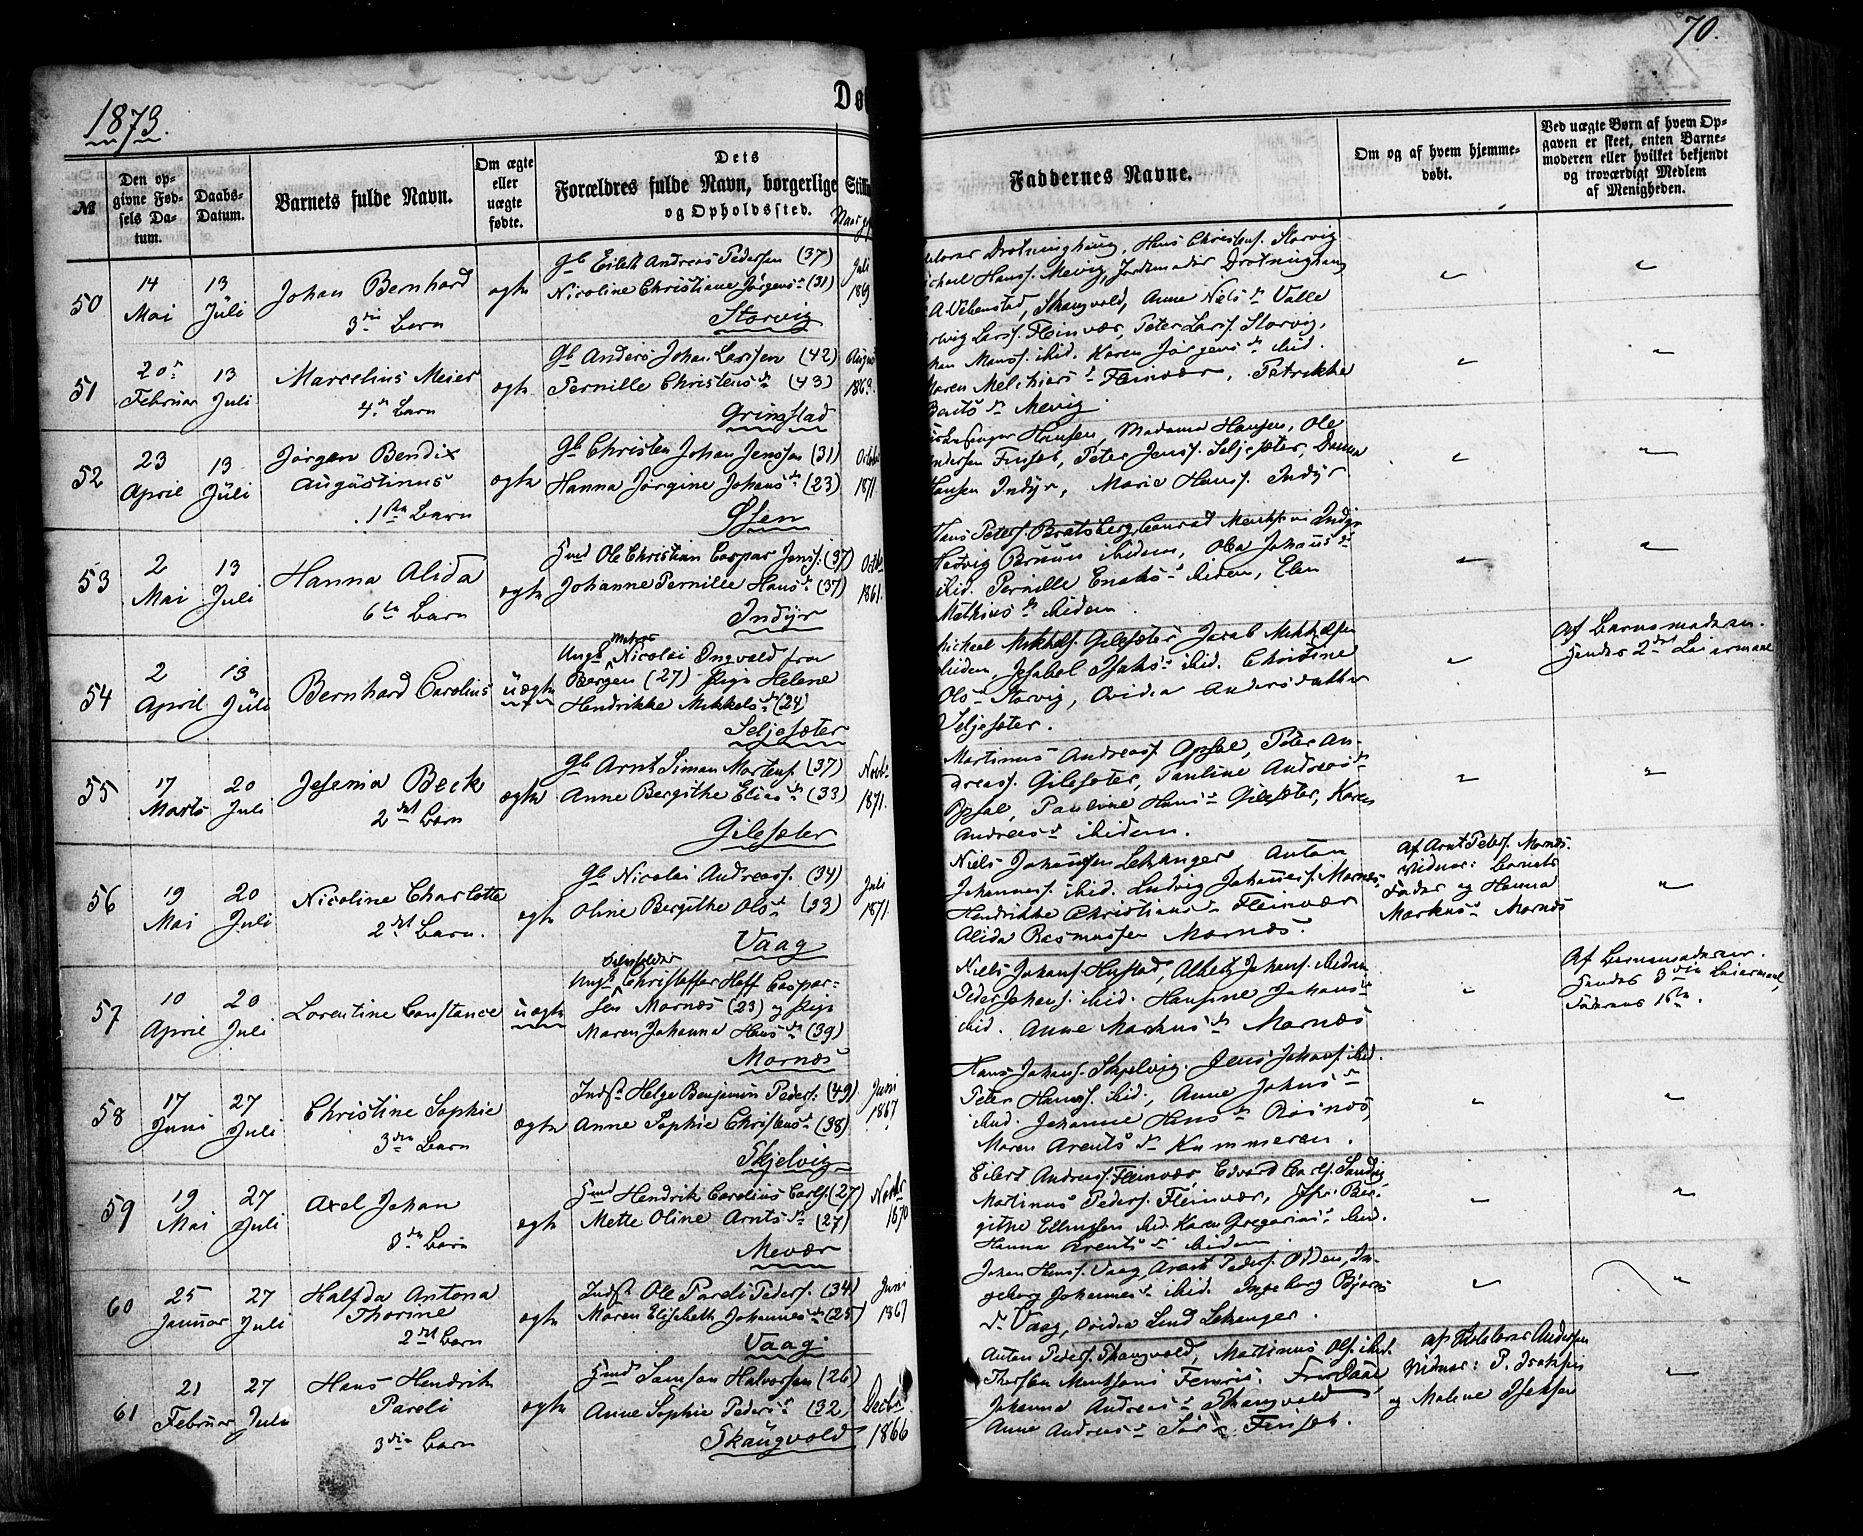 1873.
70.
Dø
№
Den op-
givne Fød-
sels Da-
tum.
Daabs-
Datum.
Barnets fulde Navn.
Om ægte
eller
uægte
fødte.
Dets
Forældres fulde Navn, borgerlige Stilli
og Opholdssted.
Faddernes Navne.
Om og af hvem hjemme-
døbt.
Ved uægte Børn af hvem Op-
gaven er skeet, enten Barne-
moderen eller hvilket bekjendt
og troværdigt Medlem
af Menigheden.
50
14
Mai
13
Juli
Johan Bernhard
3die Barn
ægte
Gb Eilert Andreas Pedersen (37)
Nicoline Christiane Jørgens (31)
Storvig
Juli
1869
Drotninghaug, Hans Christens. Storvig
Hans. Mevig, Jordemoder Drotninghaug
Skaugvold, Anne Niels Dr Valle
51
20
Februar
13
Juli
Marcelius Meier
4de Barn
ægte
Gb Anders Johan Larssen (42)
Pernille Christens Dr (43)
Grimstad
August
1863
Lars. Fleinvær, Peter Lars. Storvig,
Hans. ibid. Karen Jørgens Dr ibid.
Maren Melchiors Dr Fleinvær, Petrikke
Berits Dr Mevig.
52
23
April
13
Juli
Jørgen Bendix
Augustinus
1ste Barn
ægte
Gb Christen Johan Jenssen (31)
Hanna Jørgine Johans Dr (23)
Øsen
October
1871
Hansen, Madame Hansen, Ole
Andersen Finset, Peter Jens. Seljesæter,
Hansen Indyr, Marie Hans. Indyr
53
2
Mai
13
Juli
Hanna Alida
6te Barn
ægte
Hmd Ole Christian Caspar Jens. (37)
Johanne Pernille Hans Dr (37)
Indyr
Octb.
1861.
Hans Peters. Bratsberg, Conrad Indyr
Hedvig Bruun ibidem, Olea Johans Dr
ibid. Pernille Enoks Dr ibidem, Elen
Mathias Dr ibidem
54
2
April
13
Juli
Bernhard Carolius
uægte
Ungk Nicolai Ingvald fra
Bergen (27) Pige Helene
Hendrikke Mikkels Dr (24)
Seljesæter
Michael Mikkels. Gilesæter Jacob Mikkelsen
ibidem, Jesabel Isaks Dr ibid. Christine
Ols Dr Storvig, Ovidia Andersdatter
Seljesæter.
Af Barnemoderen.
Hendes 2det Leiermaal
55
17
Marts
20
Juli
Jesenia Beck
2det Barn
ægte
Gb Arnt Simon Mortens. (37)
Anne Bergithe Elias Dr (33)
Gilesæter
Novb.
1871.
Martinus Andreas. Opsal, Peter An-
dreas. Gilesæter, Pauline Andreas Dr
Opsal, Paulene Hans Dr Gilesæter, Karen
Andreas Dr ibidem.
56
19
Mai
20
Juli
Nicoline Charlotte
2det Barn.
ægte
Gb Nicolai Andreass. (34)
Oline Bergithe Ols Dr (23)
Vaag
Juli
1871
Niels Johansen Lekanger Anton
Johannes. ibid. Ludvig Johannes. Mornes,
Hendrikke Christians Dr Fleinvær
Alida Rasmussen Mornæs.
Af Arnt Peters. Mornes.
Vidner: Barnets
Fader og Hanna
Markus Dr Mornæs
57
10
April
20
Juli
Lorentine Constance
uægte
Ungk Christoffer Hoff Caspar-
sen Mornæs (23) og Pige
Maren Johanna Hans Dr (39)
Mornæs
Niels Johans. Hustad, Albert Johans. ibidem
Peder Johans. ibid. Hansine Johans Dr
ibid. Anne Markus Dr Mornæs
Af Barnemoderen.
Hendes 3die Leiermaal,
Faderens 1ste.
58
17
Juni
27
Juli
Christine Sophie
3die Barn
ægte
Indst Helge Benjamin Peders. (49)
Anne Sophie Christens Dr (38)
Skjelvig
Juni
1867
Hans Johans. Skjelvig. Jens Johans. ibid.
Peter Hans. ibid, Anne Johns Dr
ibid. Johanne Hans Dr Røsnæs,
Maren Arents Dr Kammeren.
59
19
Mai
27
Juli
Axel Johan
3die Barn
ægte
Hmd Hendrik Carolius Carls. (27)
Mette Oline Arnts Dr (27)
Mevær
Novbr
1870
Eilert Andreas. Fleinvær, Edvard Carls. Sandvig
Martinus Peders. Fleinvær, Jfr. Ber-
githe Ellingsen ibid. Karen Gregorius Dr ibid.
Hanna Arents Dr ibidem
60
25
Januar
27
Juli
Halfda Antona
Thorine
2det Barn
ægte
Indst Ole Pareli Peders. (34)
Maren Elisabeth Johannes Dr (25)
Vaag
Juni
1867
Johan Hans. Vaag, Arent Peders. Osen, In-
geborg Johannes Dr ibid. Ingeborg Bjørns
Dr Vaag, Ovidia Lind Lekanger.
61
21
Februar
27
Juli
Hans Hendrik
Pareli
3die Barn
ægte
Hmd Samson Halvorsen (26)
Anne Sophie Peders Dr (32
Skaugvold
Decbr
1866
Anton Peders. Skaugvold, Martinus Ols. ibid.
Johanna Andreas Dr Skaugvold
Anne Andreas Dr Finset.
af Andersen
Vidner: P. Isaksen
og Malene Isaksen